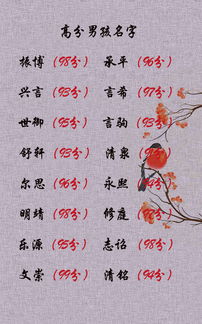 高分男孩名字
振博（98分） 承平（96分）
兴言（93分） 言希（97分）
世御（95分） 言驹（93分）
舒轩（93分） 清泉
尔思（96分） 永熙
明靖（98分） 修庭
乐源（95分） 志诏（98分）
文崇（99分） 清铭（94分）